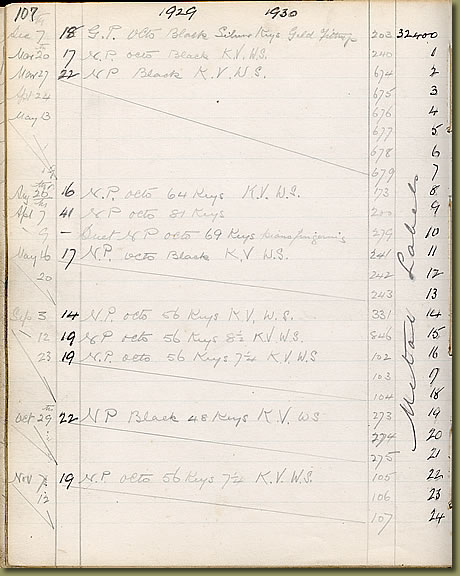 107 1929 1930
Dec 7 18 G.P. octo Black Silver Keys Gold 203 32400
Mar 20 17 N.P. octo Black K.V. W.S. 240 1
Mar 27 22 N P Black K.V. W.S. 674 2
Apl 24 675 3
May 13 676 4
677 5
678 6
679 7
16 N.P. octo 64 Keys K.V. W.S. 173 8
Apl 7 41 N P octo 81 Keys 9
9 - Duet N P octo 69 Keys 279 10
May 16 17 N.P. octo Black K.V W.S. 241 11
20 242 12
243 13
Sept 3 14 N.P. octo 56 Keys K.V. W.S. 331 14
12 19 N P octo 56 Keys 8½ K.V. W.S. 846 15
23 19 N.P. octo 56 Keys 7¼ K.V. W.S 102 16
103 17
104 18
Oct 29 22 N P Black 48 Keys K.V. WS 273 19
274 20
275 21
Nov 7 19 N.P. octo 56 Keys 7½ K.V. W.S. 105 22
12 106 23
107 24
Metal Labels